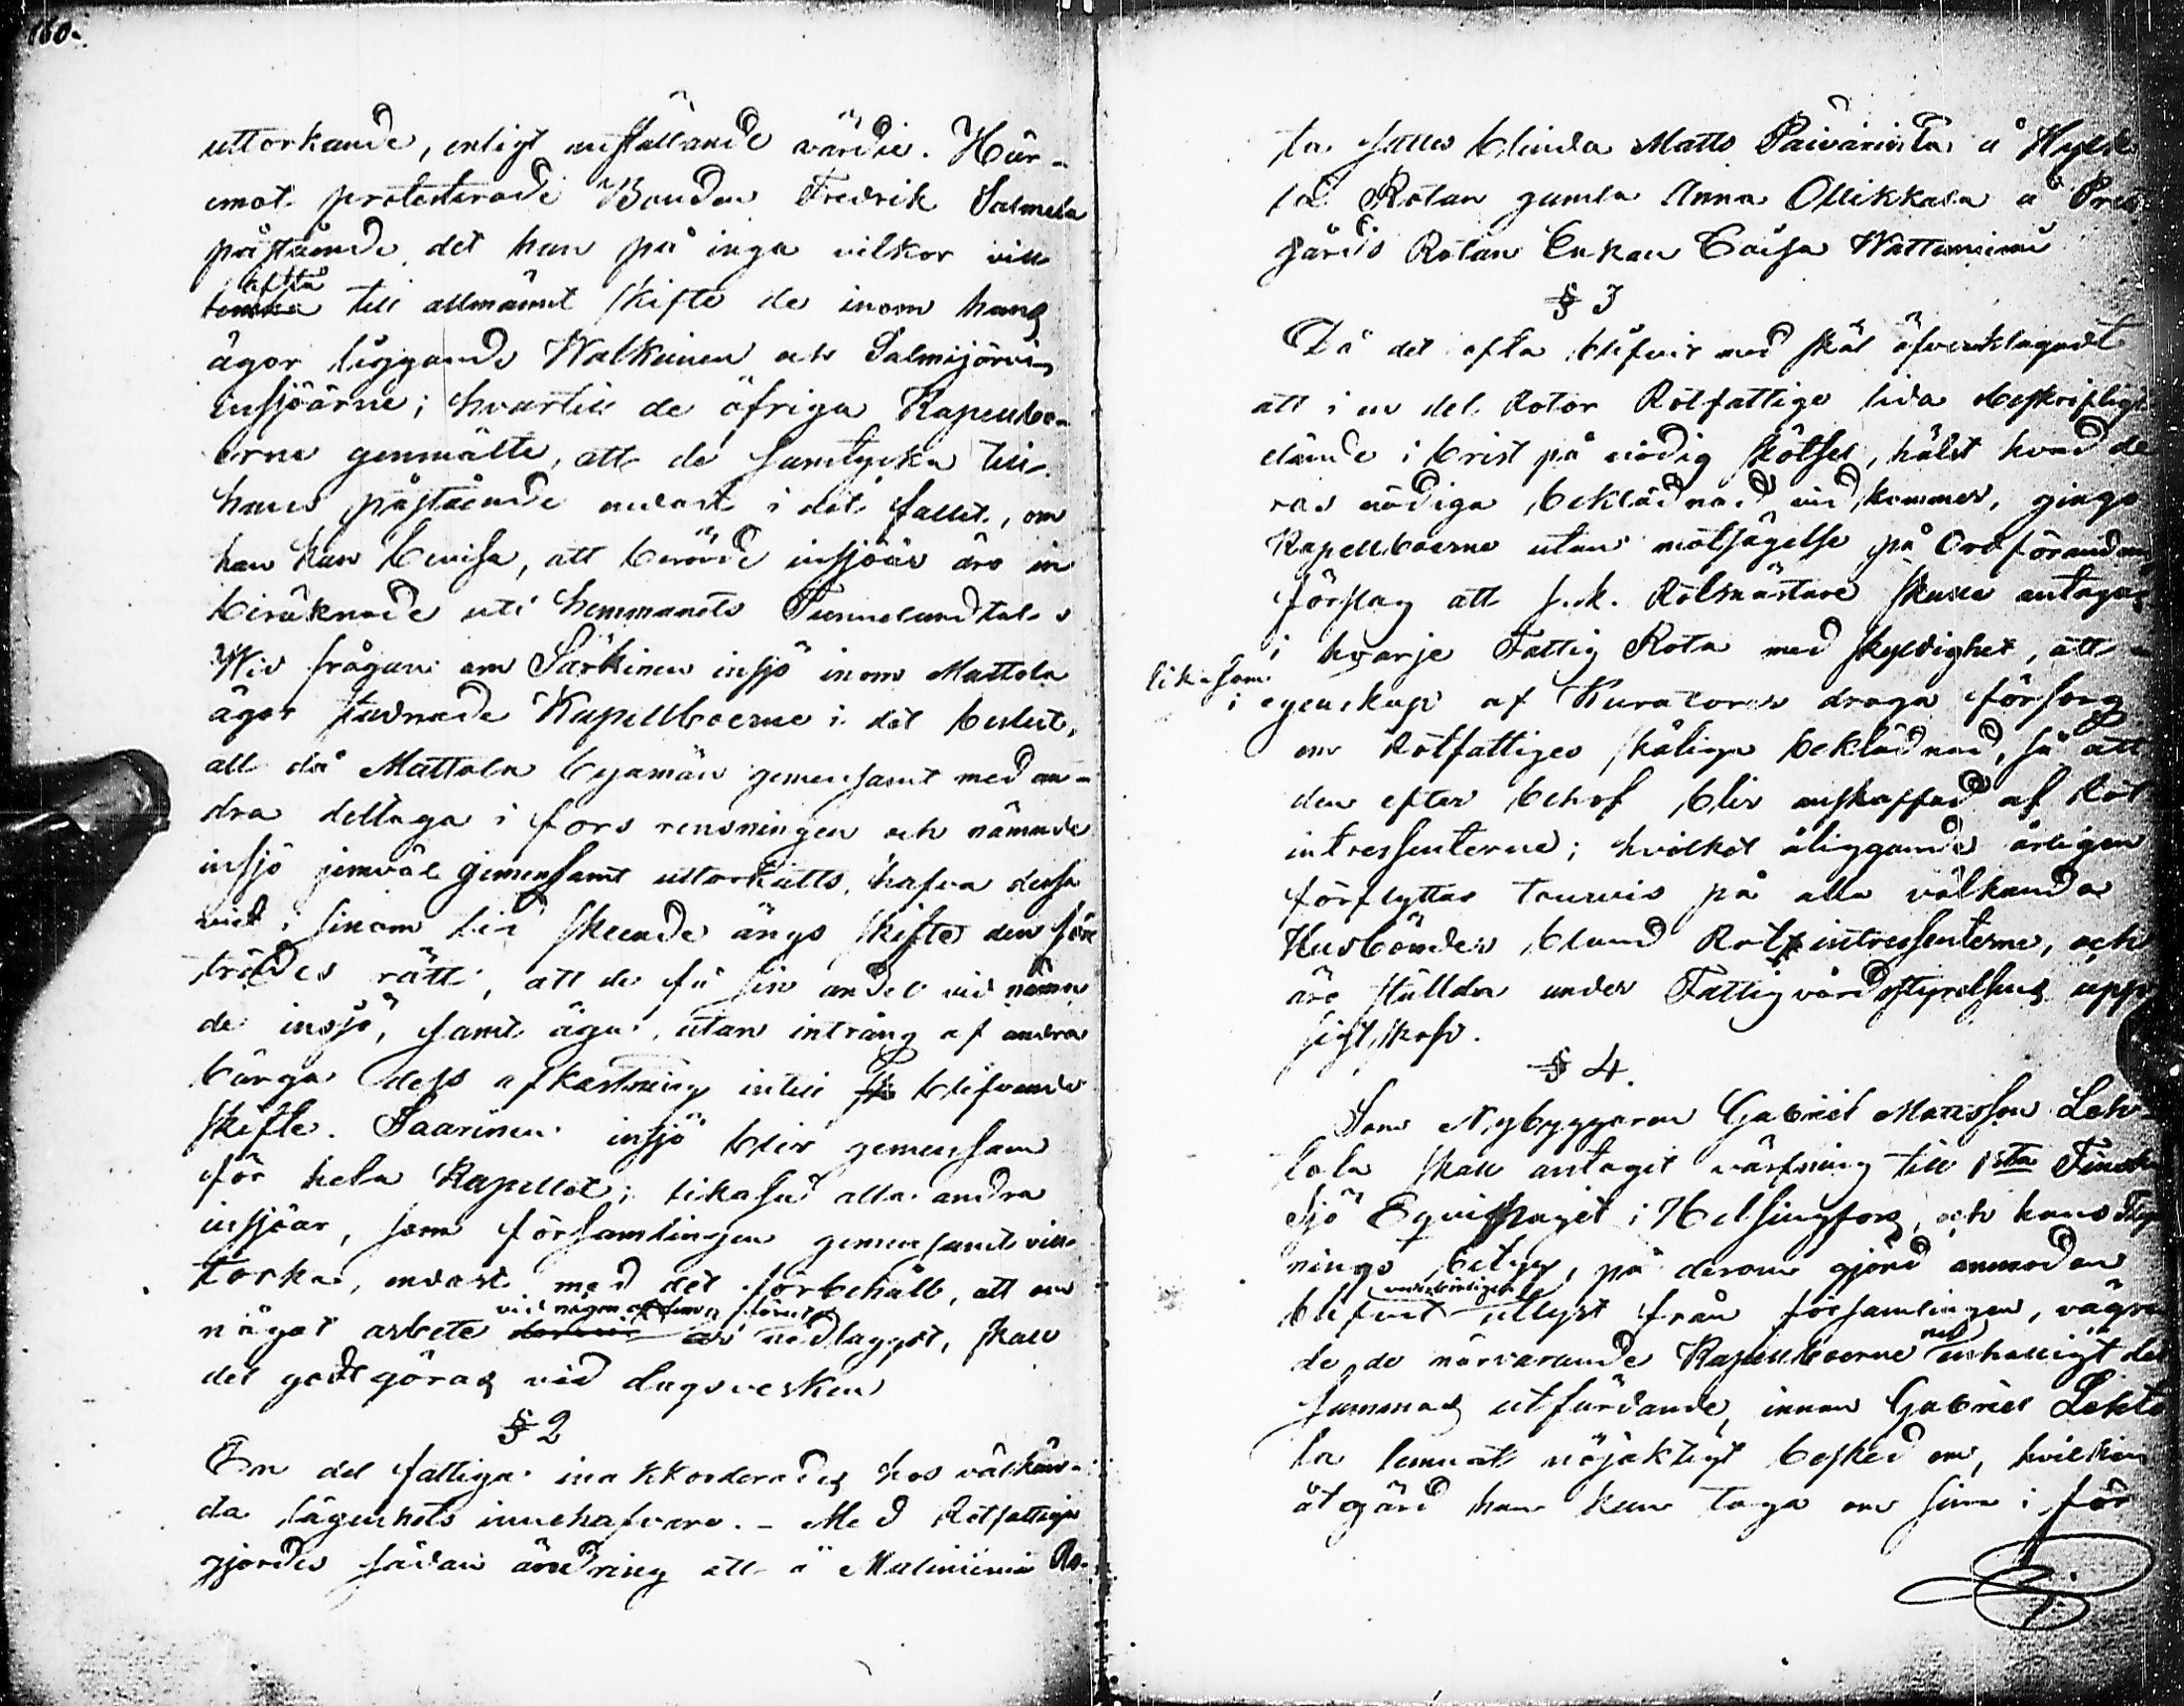 160.
uttorkande, enligt anställande värdie. Här-
emot protesterade Bonden Fredrik Salmela
påstående, det han på inga vilkor vill
aftstå
till allmännt skifte de inom hans
ägor liggande Walkeinen och Salmijärvi
insjöarne; hvartill de öfriga Kapellbo-
erne genmälte, att de samtycka till
hans påstående endast i det fallet, om
han kan bevisa, att berörde insjöar äro in
beräknade uti hemmanets Tunnelandtal.
Wid frågan om Särkinen insjö inom Mattola
ägor stadnade Kapellboerne i det beslut,
att då Mattola byamän gemensamt med an-
dra deltaga i fors rensningen och nämnde
insjö jemväl gemensamt uttorkatts, hafva dessa
vid i sinom tid skeende ängs skifte den före
trädes rätt, att de få sin andel vid nämn
de insjö, samt äga, utan intrång af andra
bärga dess afkastning intill blifvande
skifte. Saarinen insjö blir gemensam
för hela Kapellet; likaså alla andra
insjöar, som församlingen gemensamt vill
torka, endast med det förbehåll, att om
vid någon af dem förut
något arbete är nedlaggdt, skall
det godtgöras vid dagsverken
§ 2
En del fattiga inakkorderades hos välkän-
da lägenhets innehafvare. - Med Rotfattiga
gjordes sådan ändring att å Malinniemi Ro-
ta sattes blinda Matts Päivärinta å Hyls
la Rotan gamla Anna Ollikkala å Pres
gårds Rotan Enkan Caisa Wattuniemi
§ 3
Då det ofta blifvit med skäl öfverklagadt
att i en del Rotor Rotfattige lida obeskrifligt
elände i brist på nödig skötsel, hälst hvad de
ras nödiga beklädnad vid kommer, gingo
Kapellboerne utan motsägelse på Ordförandens
förslag att s.k. Rotmästare skulle antagas
i hvarje Fattig Rota med skyldighet, att
likasom
i egenskap af Kuratorer draga försorg
om Rotfattiges skäliga beklädnad, så att
den efter behof blir anskaffad af Rot
intressenterne; hvilket åliggande årligen
förflyttas tourvis på alla välkända
Husbönder bland Rotintressenterne, och
äro ställda under Fattigvårdsstyrelsens upp
sigtskap.
§ 4.
Som Nybyggaren Gabriel Mattsson Leh-
tola skall antagit värfning till 1sta Finska
Sjö Equipaget i Helsingfors, och hans Flytt
nings betyg, på derom gjord anmodan
ovedböringen
blifvit utlyst från församlingen, vägra
de de närvarande Kapellboerne enhälligt det
sammas utfärdande, innan Gabriel Lehto
la lemnat nöjaktigt besked om, hvilken
åtgärd han kan taga om sina i för